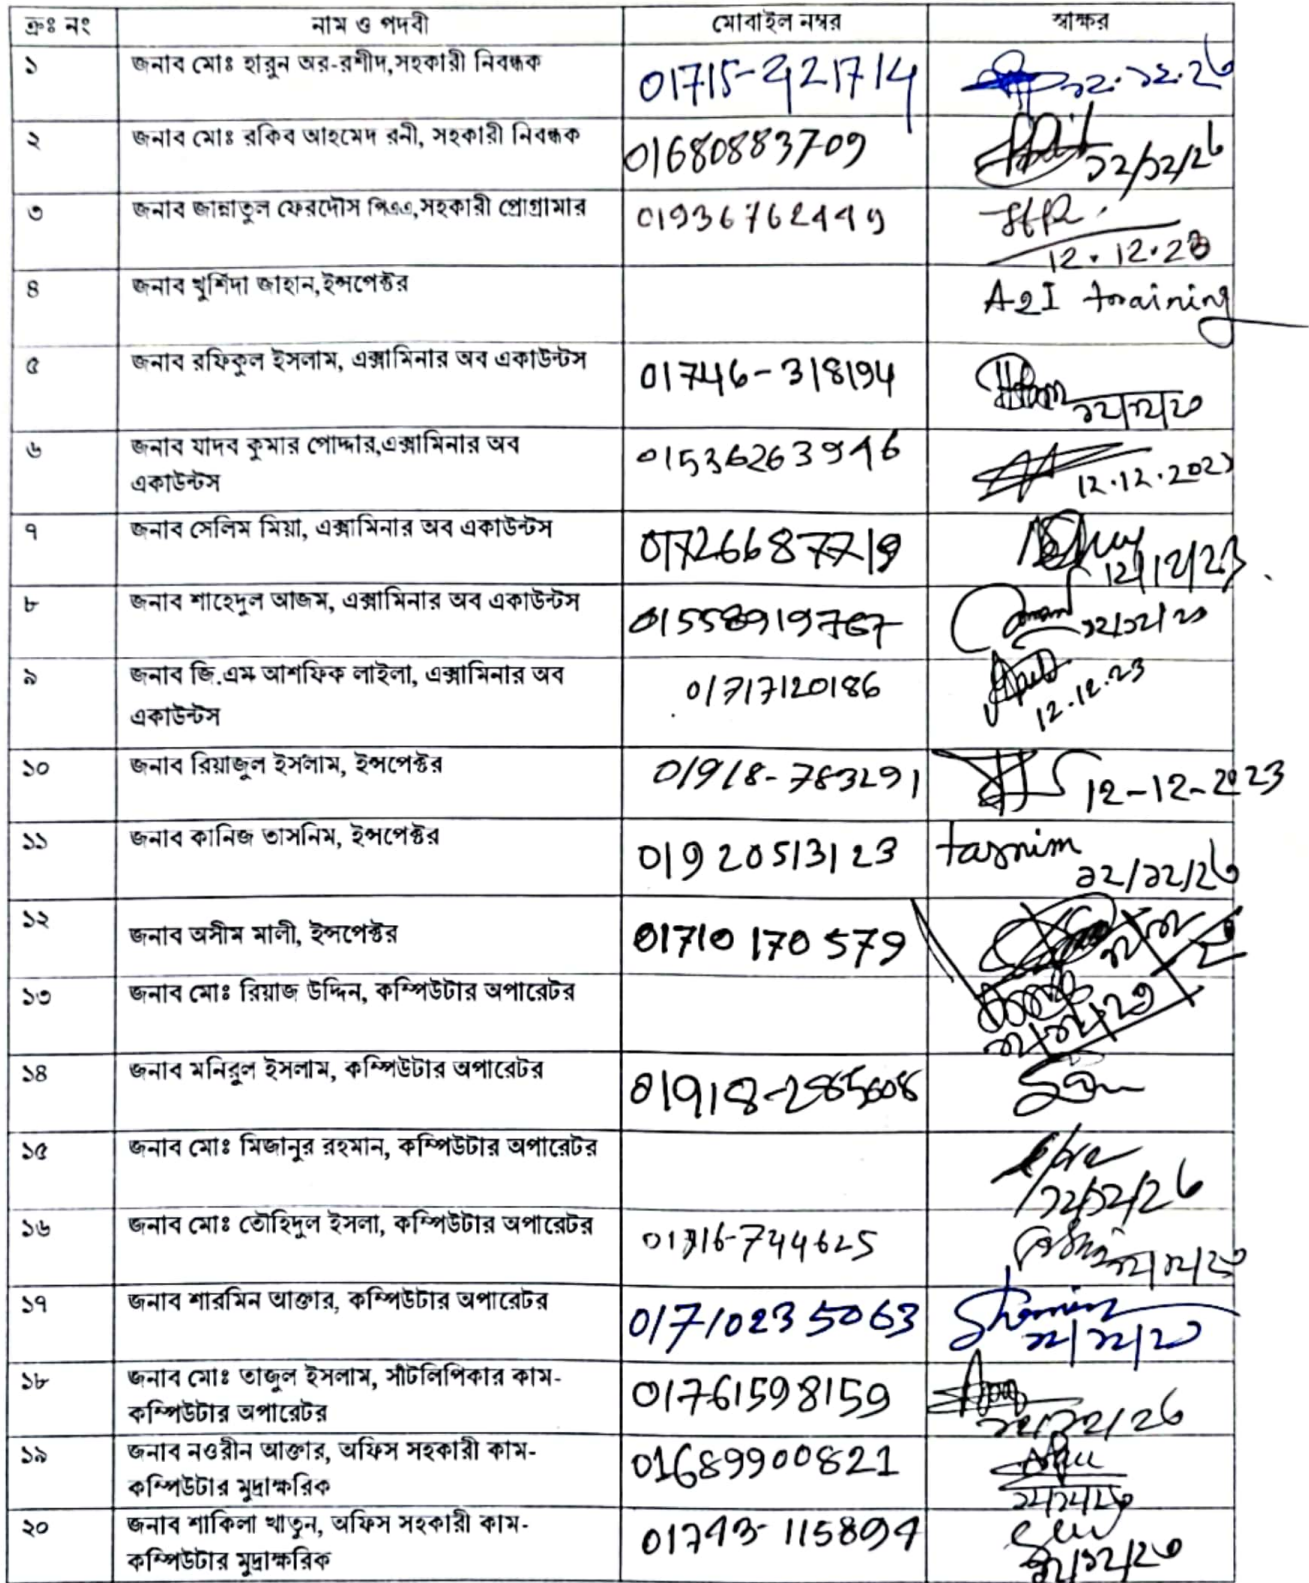 ক্রঃ নং নাম ও পদবী মোবাইল নম্বর স্বাক্ষর
১ জনাব মোঃ হারুন অর-রশীদ,সহকারী নিবন্ধক 01715-221714 ১২.১২.২৩
২ জনাব মোঃ রকিব আহমেদ রনী, সহকারী নিবন্ধক 01680883709 ১২/১২/২৩
৩ জনাব জান্নাতুল ফেরদৌস পিএএ,সহকারী প্রোগ্রামার 01936762449 12.12.23
৪ জনাব খুর্শিদা জাহান,ইন্সপেক্টর A2I training
৫ জনাব রফিকুল ইসলাম, এক্সামিনার অব একাউন্টস 01746-318194 ১২/১২/২৩
৬ জনাব যাদব কুমার পোদ্দার,এক্সামিনার অব
একাউন্টস 01536263946 12.12.2023
৭ জনাব সেলিম মিয়া, এক্সামিনার অব একাউন্টস 01726687719 12/12/23
৮ জনাব শাহেদুল আজম, এক্সামিনার অব একাউন্টস 01558919767 ১২/১২/২৩
৯ জনাব জি.এম আশফিক লাইলা, এক্সামিনার অব
একাউন্টস 01717120186 12.12.23
১০ জনাব রিয়াজুল ইসলাম, ইন্সপেক্টর 01918-783291 12-12-2023
১১ জনাব কানিজ তাসনিম, ইন্সপেক্টর 01920513123 tasnim ১২/১২/২৩
১২ জনাব অসীম মালী, ইন্সপেক্টর 01710 170 579
১৩ জনাব মোঃ রিয়াজ উদ্দিন, কম্পিউটার অপারেটর ১২/১২/২৩
১৪ জনাব মনিরুল ইসলাম, কম্পিউটার অপারেটর 01918-285608
১৫ জনাব মোঃ মিজানুর রহমান, কম্পিউটার অপারেটর ১২/১২/২৩
১৬ জনাব মোঃ তৌহিদুল ইসলা, কম্পিউটার অপারেটর 744625 ১২/১২/২৩
১৭ জনাব শারমিন আক্তার, কম্পিউটার অপারেটর 01710235063 ১২/১২/২৩
১৮ জনাব মোঃ তাজুল ইসলাম, সাঁটলিপিকার কাম-
কম্পিউটার অপারেটর 01761598159 ১২/১২/২৩
১৯ জনাব নওরীন আক্তার, অফিস সহকারী কাম-
কম্পিউটার মুদ্রাক্ষরিক 01689900821 ১২/১২/২৩
২০ জনাব শাকিলা খাতুন, অফিস সহকারী কাম-
কম্পিউটার মুদ্রাক্ষরিক 01743-115894 ১২/১২/২৩